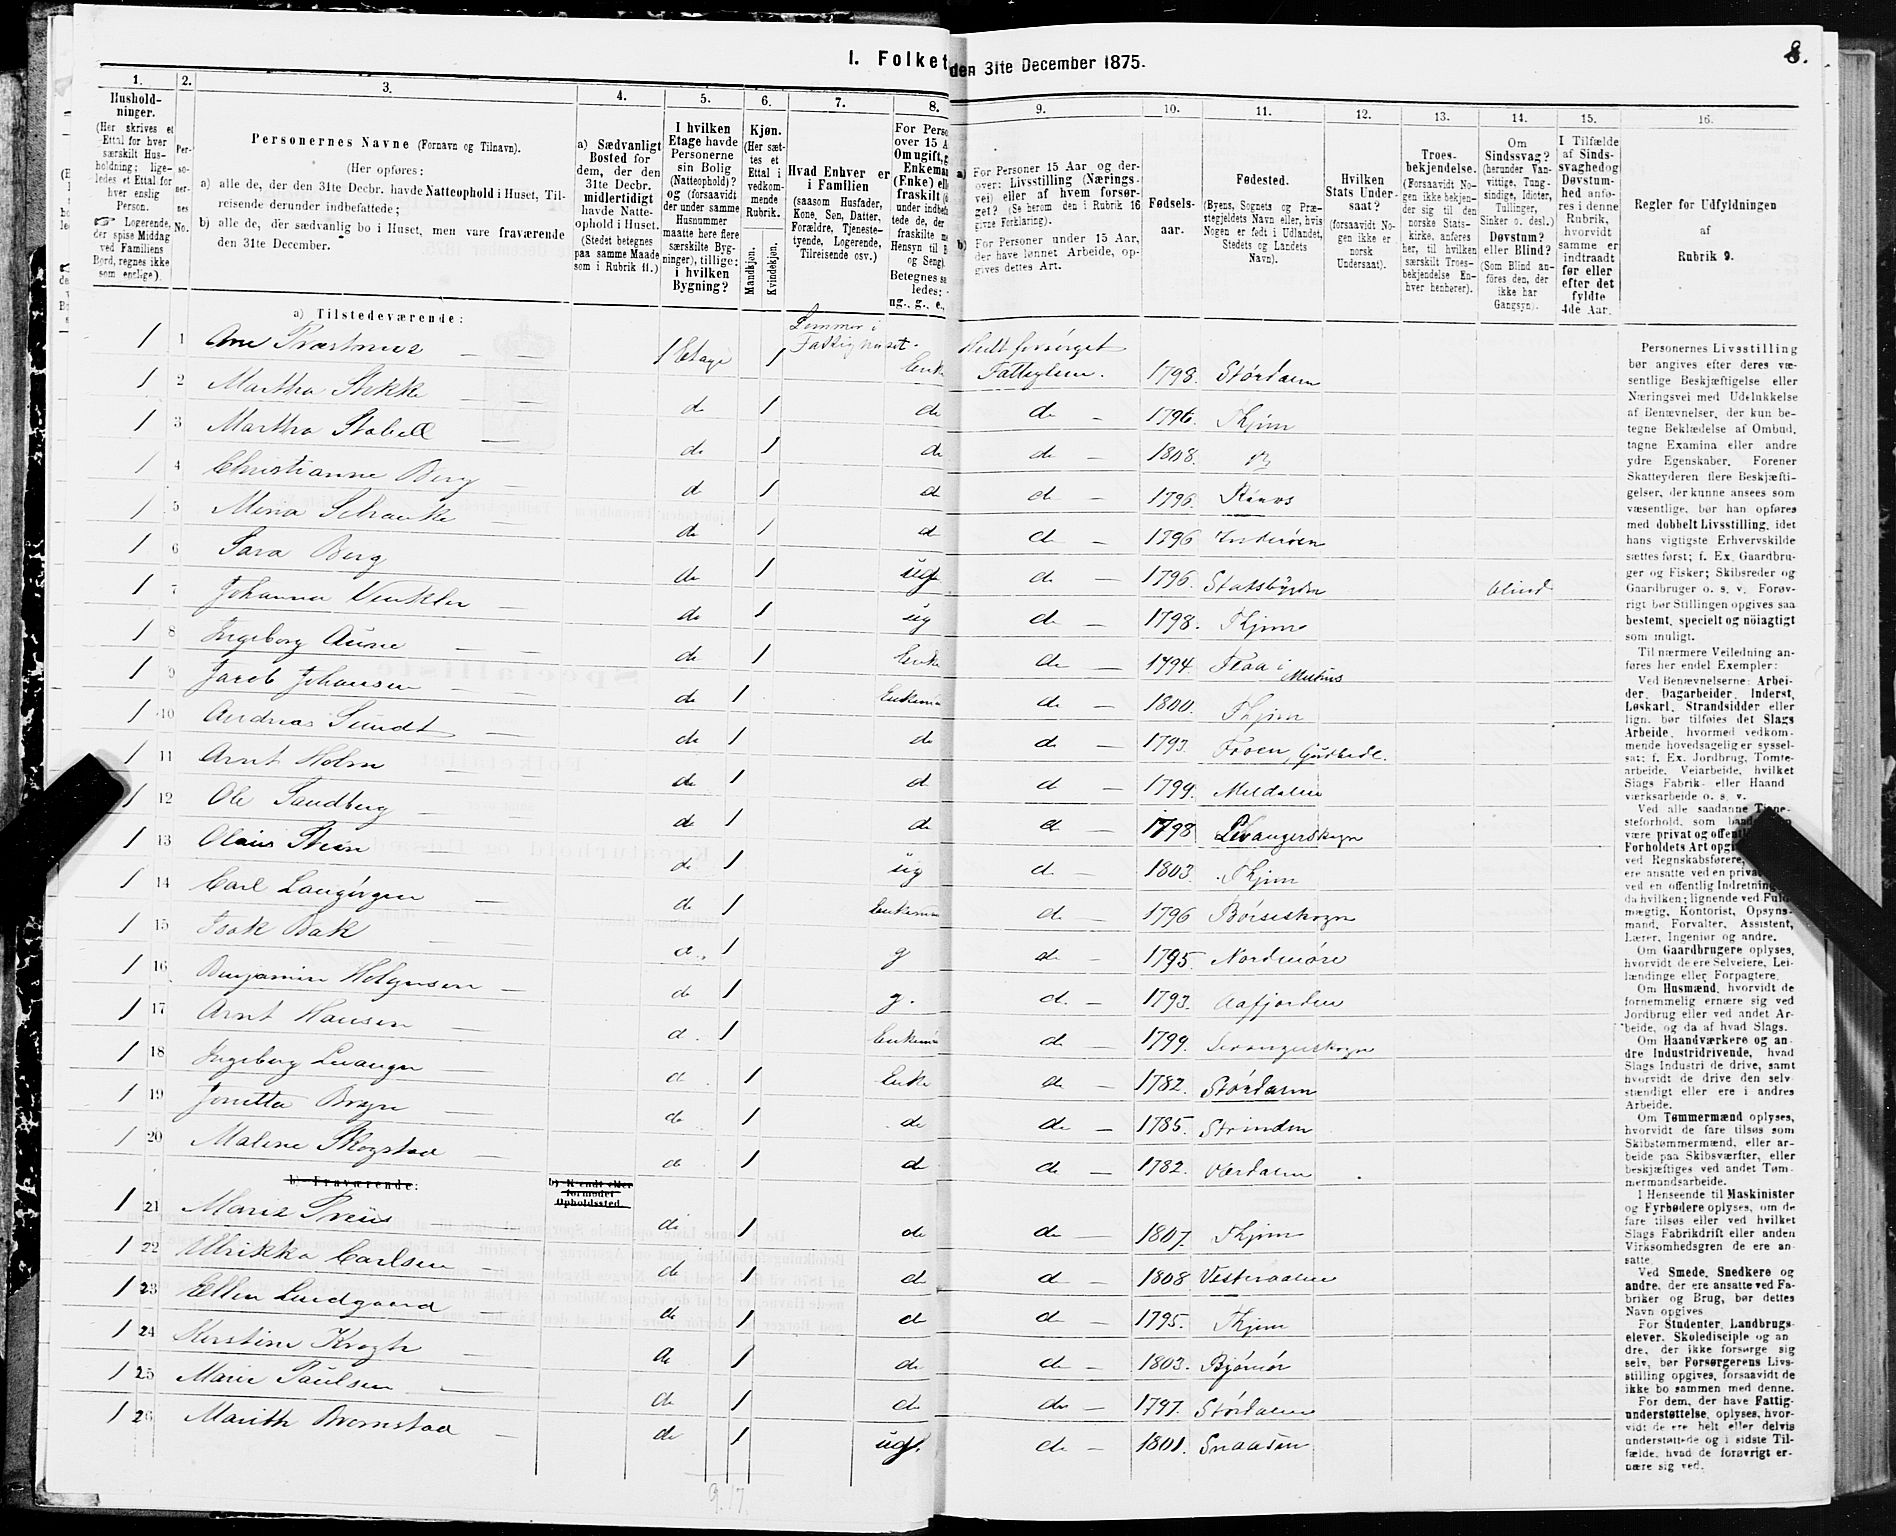 I. Folket
den 31te December 1875.
8.
1.
2.
3.
4.
5.
6.
7.
8.
9.
10.
11.
12.
13.
14.
15.
16.
Hushold-
ninger.
(Her skrives et
Ettal for hver
særskilt Hus-
holdning; lige-
ledes et Ettal for
hver enslig
Person.
☞ Logerende,
der spise Middag
ved Familiens
Bord, regnes ikke
som enslige).
Per-
so-
ner-
nes
No.
Personernes Navne (Fornavn og Tilnavn).
(Her opføres:
a) alle de, der den 31te Decbr. havde Natteophold i Huset, Til-
reisende derunder indbefattede;
b) alle de, der sædvanlig bo i Huset, men vare fraværende
den 31te December.
a) Sædvanligt
Bosted for
dem, der den
31te Decbr.
midlertidigt
havde Natte-
ophold i Huset.
(Stedet betegnes
paa samme Maade
som i Rubrik 11.)
I hvilken
Etage havde
Personerne
sin Bolig
(Natteophold)?
og (forsaavidt
der under samme
Husnummer
maatte være flere
særskilte Byg-
ninger), tillige:
i hvilken
Bygning?
Kjøn.
(Her sæt-
tes et
Ettal i
vedkom-
mende
Rubrik.
Mandkjøn.
Kvindekjøn.
Hvad Enhver er
i Familien
(saasom Husfader,
Kone, Søn, Datter,
Forældre, Tjeneste-
tyende, Logerende,
Tilreisende osv.)
For Perso
over 15 A
Om ugift, g
Enkema
(Enke) ell
fraskilt (
under indbe
tede de, der
fraskilte m
Hensyn til B
og Seng).
Betegnes sa
ledes:
ug., g., e.,
a)
For Personer 15 Aar og der-
over: Livsstilling (Nærings-
vei) eller af hvem forsør-
get? (Se herom den i Rubrik 16
givne Forklaring).
b)
For Personer under 15 Aar,
der have lønnet Arbeide, op-
gives dettes Art.
Fødsels-
aar.
Fødested.
(Byens, Sognets og Præ-
stegjeldets Navn eller, hvis
Nogen er født i Udlandet,
Stedets og Landets
Navn).
I Hvilken
Stats Under-
saat?
(forsaavidt No-
gen ikke er
norsk
Undersaat).
Troes-
bekjendelse.
(Forsaavidt No-
gen ikke bekjen-
der sig til den
norske Stats-
kirke, anføres
her, til hvilken
særskilt Troes-
bekjendelse En-
hver henhører).
Om
Sindssvag?
(herunder Van-
vittige, Tung-
sindige, Idioter,
Tullinger,
Sinker o. desl.)
Døvstum?
eller Blind?
(Som Blind an-
føres den, der
ikke har
Gangsyn).
I Tilfælde
af Sinds-
svaghed og
Døvstum-
hed anfø-
res i denne
Rubrik,
hvorvidt
samme er
indtraadt
før eller
efter det
fyldte
4de Aar.
Regler for Udfyldningen
af
Rubrik 9.
a) Tilstedeværende:
1 1 Ane 1 Etage 1 Lemmer i Fattighuset. Enke Helt forsørget Fatteglem. 1798. Størdalen
1 2 Martha Stokke — do 1 do d — 1796. Thjem
1 3 Martha Stabell — do 1 do d — 1808. do
1 4 Christianne Berg — do 1 d d — 1796.
1 5 Mina Schanke — do 1 d d — 1796 Inderøen
1 6 Sara Berg do 1 ug. d — 1796. Statsbygden blind
1 7 Johanna Vinkler — do 1 ug d — 1798. Thjem
1 8 Ingeborg Aune — do 1 Enke d — 1794. Flaa i Melhus
1 9 Jacob Johansen — do 1 Enkem d — 1800. Thjem
1 10 Andreas Sundt — do 1 do d — 1793. Froen, Gudbrdl.
1 11 Arnt Holm — do 1 d d — 1799. Meldalen
1 12 Ole Sandberg — do 1 do d — 1798. Levangerskogn
1 13 Olaus Steen do 1 ug d — 1803. Thjem
1 14 Carl Langørgen — do 1 Enkem d — 1796 Børseskogn
1 15 Isak Bak — d. 1 g d — 1795. Nordmøre
1 16 Benjamin Holgersen — do 1 g. d. — 1793. Aafjorden
1 17 Arnt Hansen — d. 1 Enkem d — 1799. Levangerskogn
1 18 Ingeborg Levanger — d 1 Enke d — 1782. Størdalen
1 19 Jonetta — do 1 do d — 1785. Strinden
1 20 Malene Skogstad — d 1 d d — 1782. Værdalen
b) Fraværende:
b) Kjendt eller
formodet
Opholdssted.
1 21 Marie Preus do 1 do d — 1807. Thjem
1 22 Ulrikka Carlsen — do 1 d d — 1808 Vesteraalen
1 23 Ellen Lundgaard — do 1 d d — 1795. Thjem
1 24 Kerstine Krogh — do 1 do d — 1803. Bjørnør
1 25 Marie Paulsen — do 1 do do — 1797. Størdalen
1 26 Marith — do 1 ug. d — 1801. Snaasen
9. 17.
Personernes Livsstilling
bør angives efter deres væ-
sentlige Beskjæftigelse eller
Næringsvei med Udelukkelse
af Benævnelser, der kun be-
tegne Beklædelse af Ombud,
tagne Examina eller andre
ydre Egenskaber. Forener
Skatteyderen flere Beskjæfti-
gelser, der kunne ansees som
væsentlige, bør han opføres
med dobbelt Livsstilling, idet
hans vigtigste Erhvervskilde
sættes først; f. Ex. Gaardbru-
ger og Fisker; Skibsreder og
Gaardbruger o. s. v. Forøv-
rigt bør Stillingen opgives saa
bestemt, specielt og nöiagtigt
som muligt.
Til nærmere Veiledning an-
føres her endel Exempler:
Ved Benævnelserne: Arbei-
der, Dagarbeider, Inderst,
Løskarl, Strandsidder eller
lign. bør tilføies det Slags
Arbeide, hvormed vedkom-
mende hovedsagelig er syssel-
sat; f. Ex. Jordbrug, Tomte-
arbeide, Veiarbeide, hvilket
Slags Fabrik- eller Haand
værksarbeide o. s. v.
Ved alle saadanne Tjene-
steforhold, som
være privat og offentl
Forholdets Art opgi
ved Regnskabsførere,
ere ansatte ved en priva
ved en offentlig Indretning
da hvilken; lignende ved Fuld
mægtig, Kontorist, Opsyns-
mand, Forvalter, Assistent,
Lærer, Ingeniør og andre.
Om Gaardbrugere oplyses,
hvorvidt de ere Selveiere, Lei-
lændinge eller Forpagtere.
Om Husmænd, hvorvidt de
fornemmelig ernære sig ved
Jordbrug eller ved andet Ar-
beide, og da af hvad Slags.
Om Haandværkere og an-
dre Industridrivende, hvad
Slags Industri de drive, samt
hvorvidt de drive den selv-
stændigt eller ere i andres
Arbeide.
Om Tømmermænd oplyses,
hvorvidt de fare tilsøs som
Skibstømmermænd, eller ar-
beide paa Skibsværfter, eller
beskjæftiges ved andet Tøm-
mermandsarbeide.
I Henseende til Maskinister
og Fyrbødere oplyses, om de
fare tilsøs eller ved hvilket
Slags Fabrikdrift eller anden
Virksomhedsgren de ere an-
satte.
Ved Smede, Snedkere og
andre, der ere ansatte ved Fa-
briker og Brug, bør dettes
Navn opgives.
For Studenter, Landbrugs-
elever, Skoledisciple og an
dre, der ikke forsørge sig
selv, bør Forsørgerens Livs-
stilling opgives, forsaavidt de
ikke bo sammen med denne.
For dem, der have Fattig-
understøttelse, oplyses, hvor-
vidt de ere helt eller delvis
understøttede og i sidste Til-
fælde, hvad de forøvrigt er-
nære sig ved.